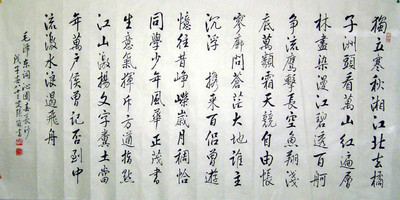 獨立寒秋湘江北去橘
子洲頭看萬山紅遍層
林盡染漫江碧透百舸
争流鷹擊長空魚翔淺
底萬類霜天競自由悵
寥廓問蒼茫大地誰主
沉浮 携來百侣曾遊
憶往昔崢嶸歲月稠恰
同學少年風華正茂書
生意氣揮斥方遒指點
江山激揚文字糞土當
年萬户侯曾記否到中
流激水浪遏飛舟
毛澤東詞沁園春長沙